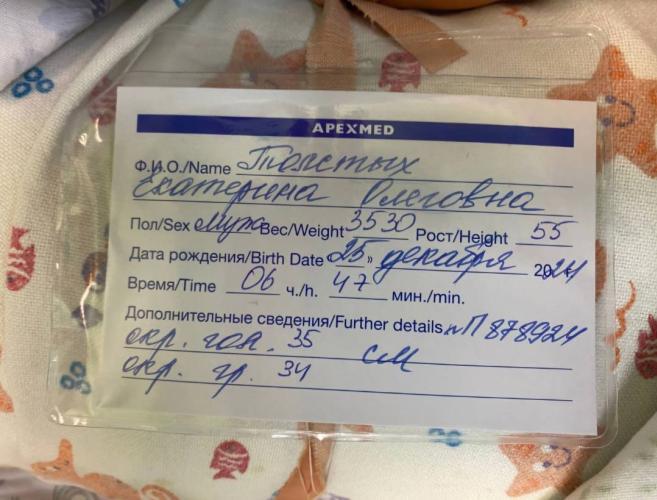 APEXMED
Ф.И.О./Name Толстых
Екатерина Олеговна
Пол/Sex муж Вес/Weight 3530 Рост/Height 55
Дата рождения/Birth Date "25" декабря 2024
Время/Time 06 ч./h. 47 мин./min.
Дополнительные сведения/Further details П 878924
окр. гол. 35 см
окр. гр. 34